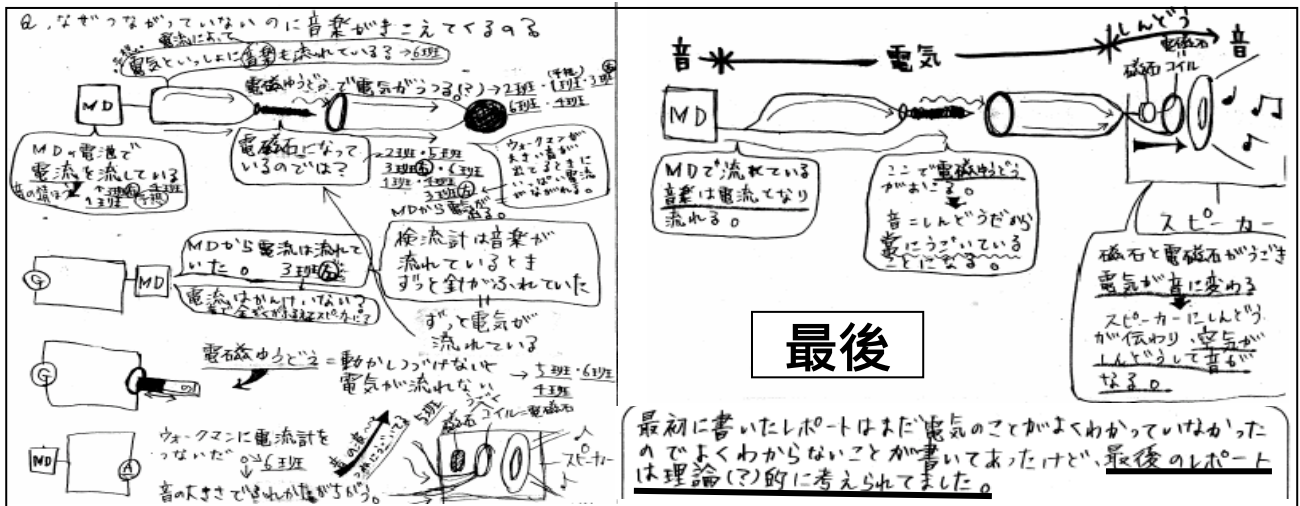 Q.なぜつながっていないのに音楽がきこえてくるのる
予想 電流によって
電気といっしょに音楽も流れている？→6班
電磁ゆうどうで電気がうつる。(?)→2班・1班・3班
(予想)
6班・4班
MD
MDの電池で
電流を流している
電磁石になって
いるのでは？
2班・5班
3班・6班
1班・4班
3班
ウォークマンが
大きい音が
出てるときに
いっぱい電流
がながれる。
MDから電気が
MDから電流は流れて
いた。 3班
電流はかんけいない？
検流計は音楽が
流れているとき
ずっと針がふれていた
ずっと電気が
流れている
G
MD
G
電磁ゆうどう＝動かしつづけないと
電気が流れない
→5班・6班
4班
MD
A
ウォークマンに電流計を
つないだ
6班
音の大きさでふれかたがちがう。
5班
うごく
磁石 コイル＝電磁石
スピーカー
音 電気 しんどう 音
電磁石
磁石 コイル
MD
MDで流れている
音楽は電流となり
流れる。
ここで電磁ゆうどう
がおこる。
音＝しんどうだから
常にうごいている
ことになる。
スピーカー
磁石と電磁石がうごき
電気が音に変わる
スピーカーにしんどう
が伝わり、空気が
しんどうして音が
なる。
最後
最初に書いたレポートはまだ電気のことがよくわかっていなかった
のでよくわからないことが書いてあったけど、最後のレポート
は理論(?)的に考えられてました。